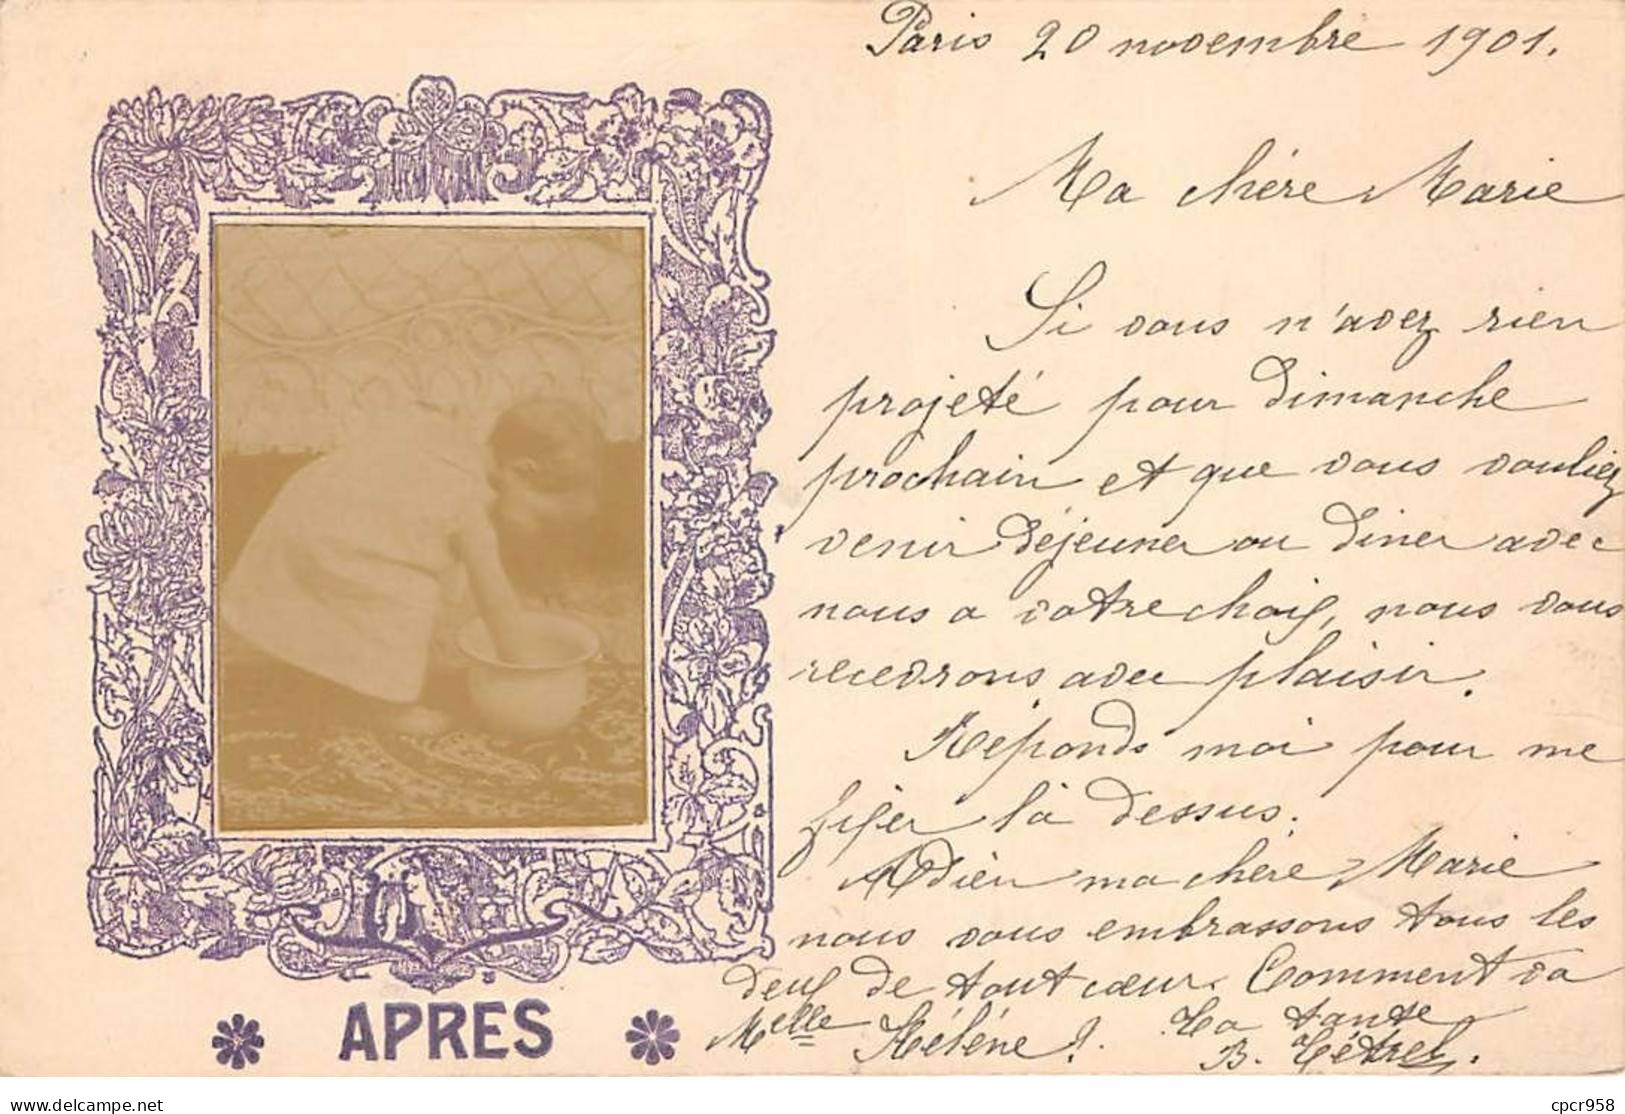 Paris 20 novembre 1901.
Ma chère Marie
Si vous n'avez rien
projeté pour Dimanche
prochain et que vous vouliez
venir déjeuner ou diner avec
nous a votre choix, nous vous
recevrons avec plaisir.
Réponds moi pour me
fixer là dessus.
Adieu ma chère Marie
nous vous embrassons tous les
deux de tout cœur. Comment va
Melle Hélène ? Ta tante
B.
APRES
delcampe.net
cpcr958